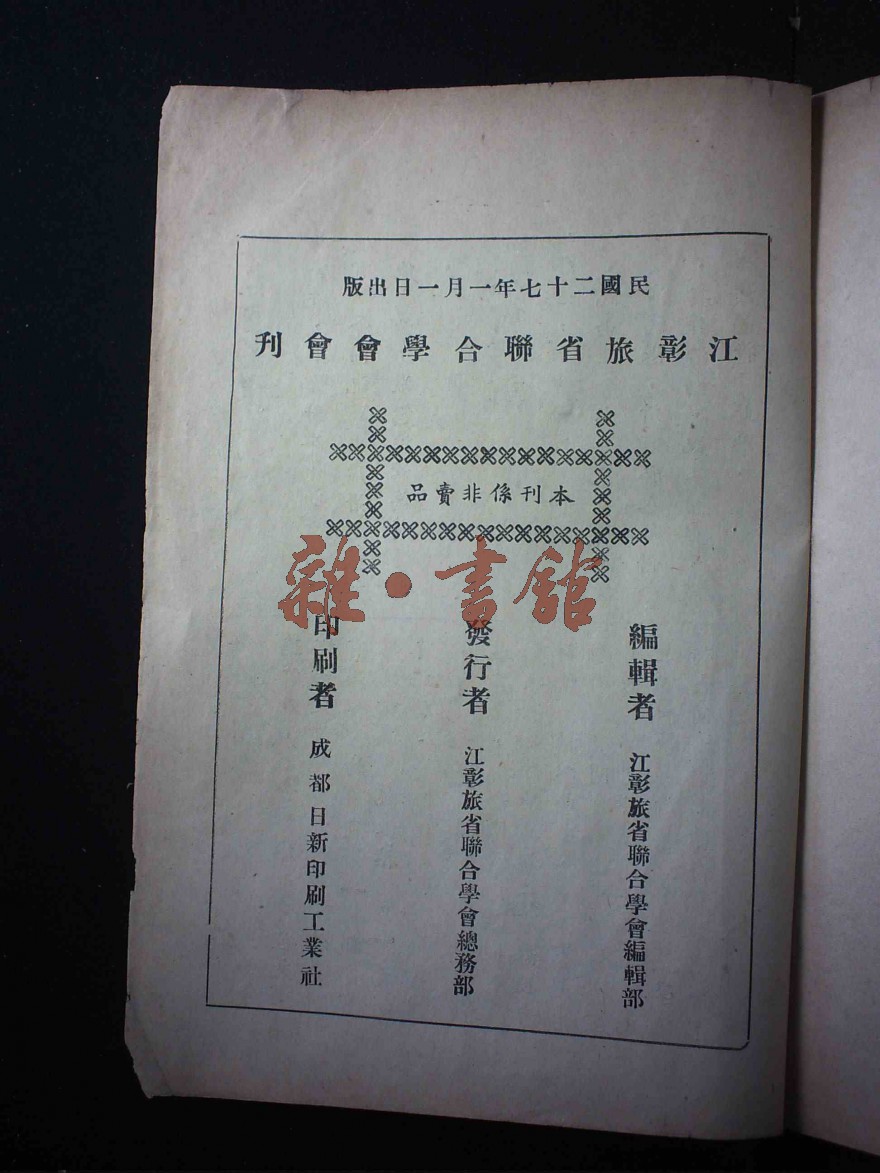 民國二十七年一月一日出版
江彰旅省聯合學會會刊
本刊係非賣品
雜·書館
編輯者 江彰旅省聯合學會編輯部
發行者 江彰旅省聯合學會總務部
印刷者 成都日新印刷工業社